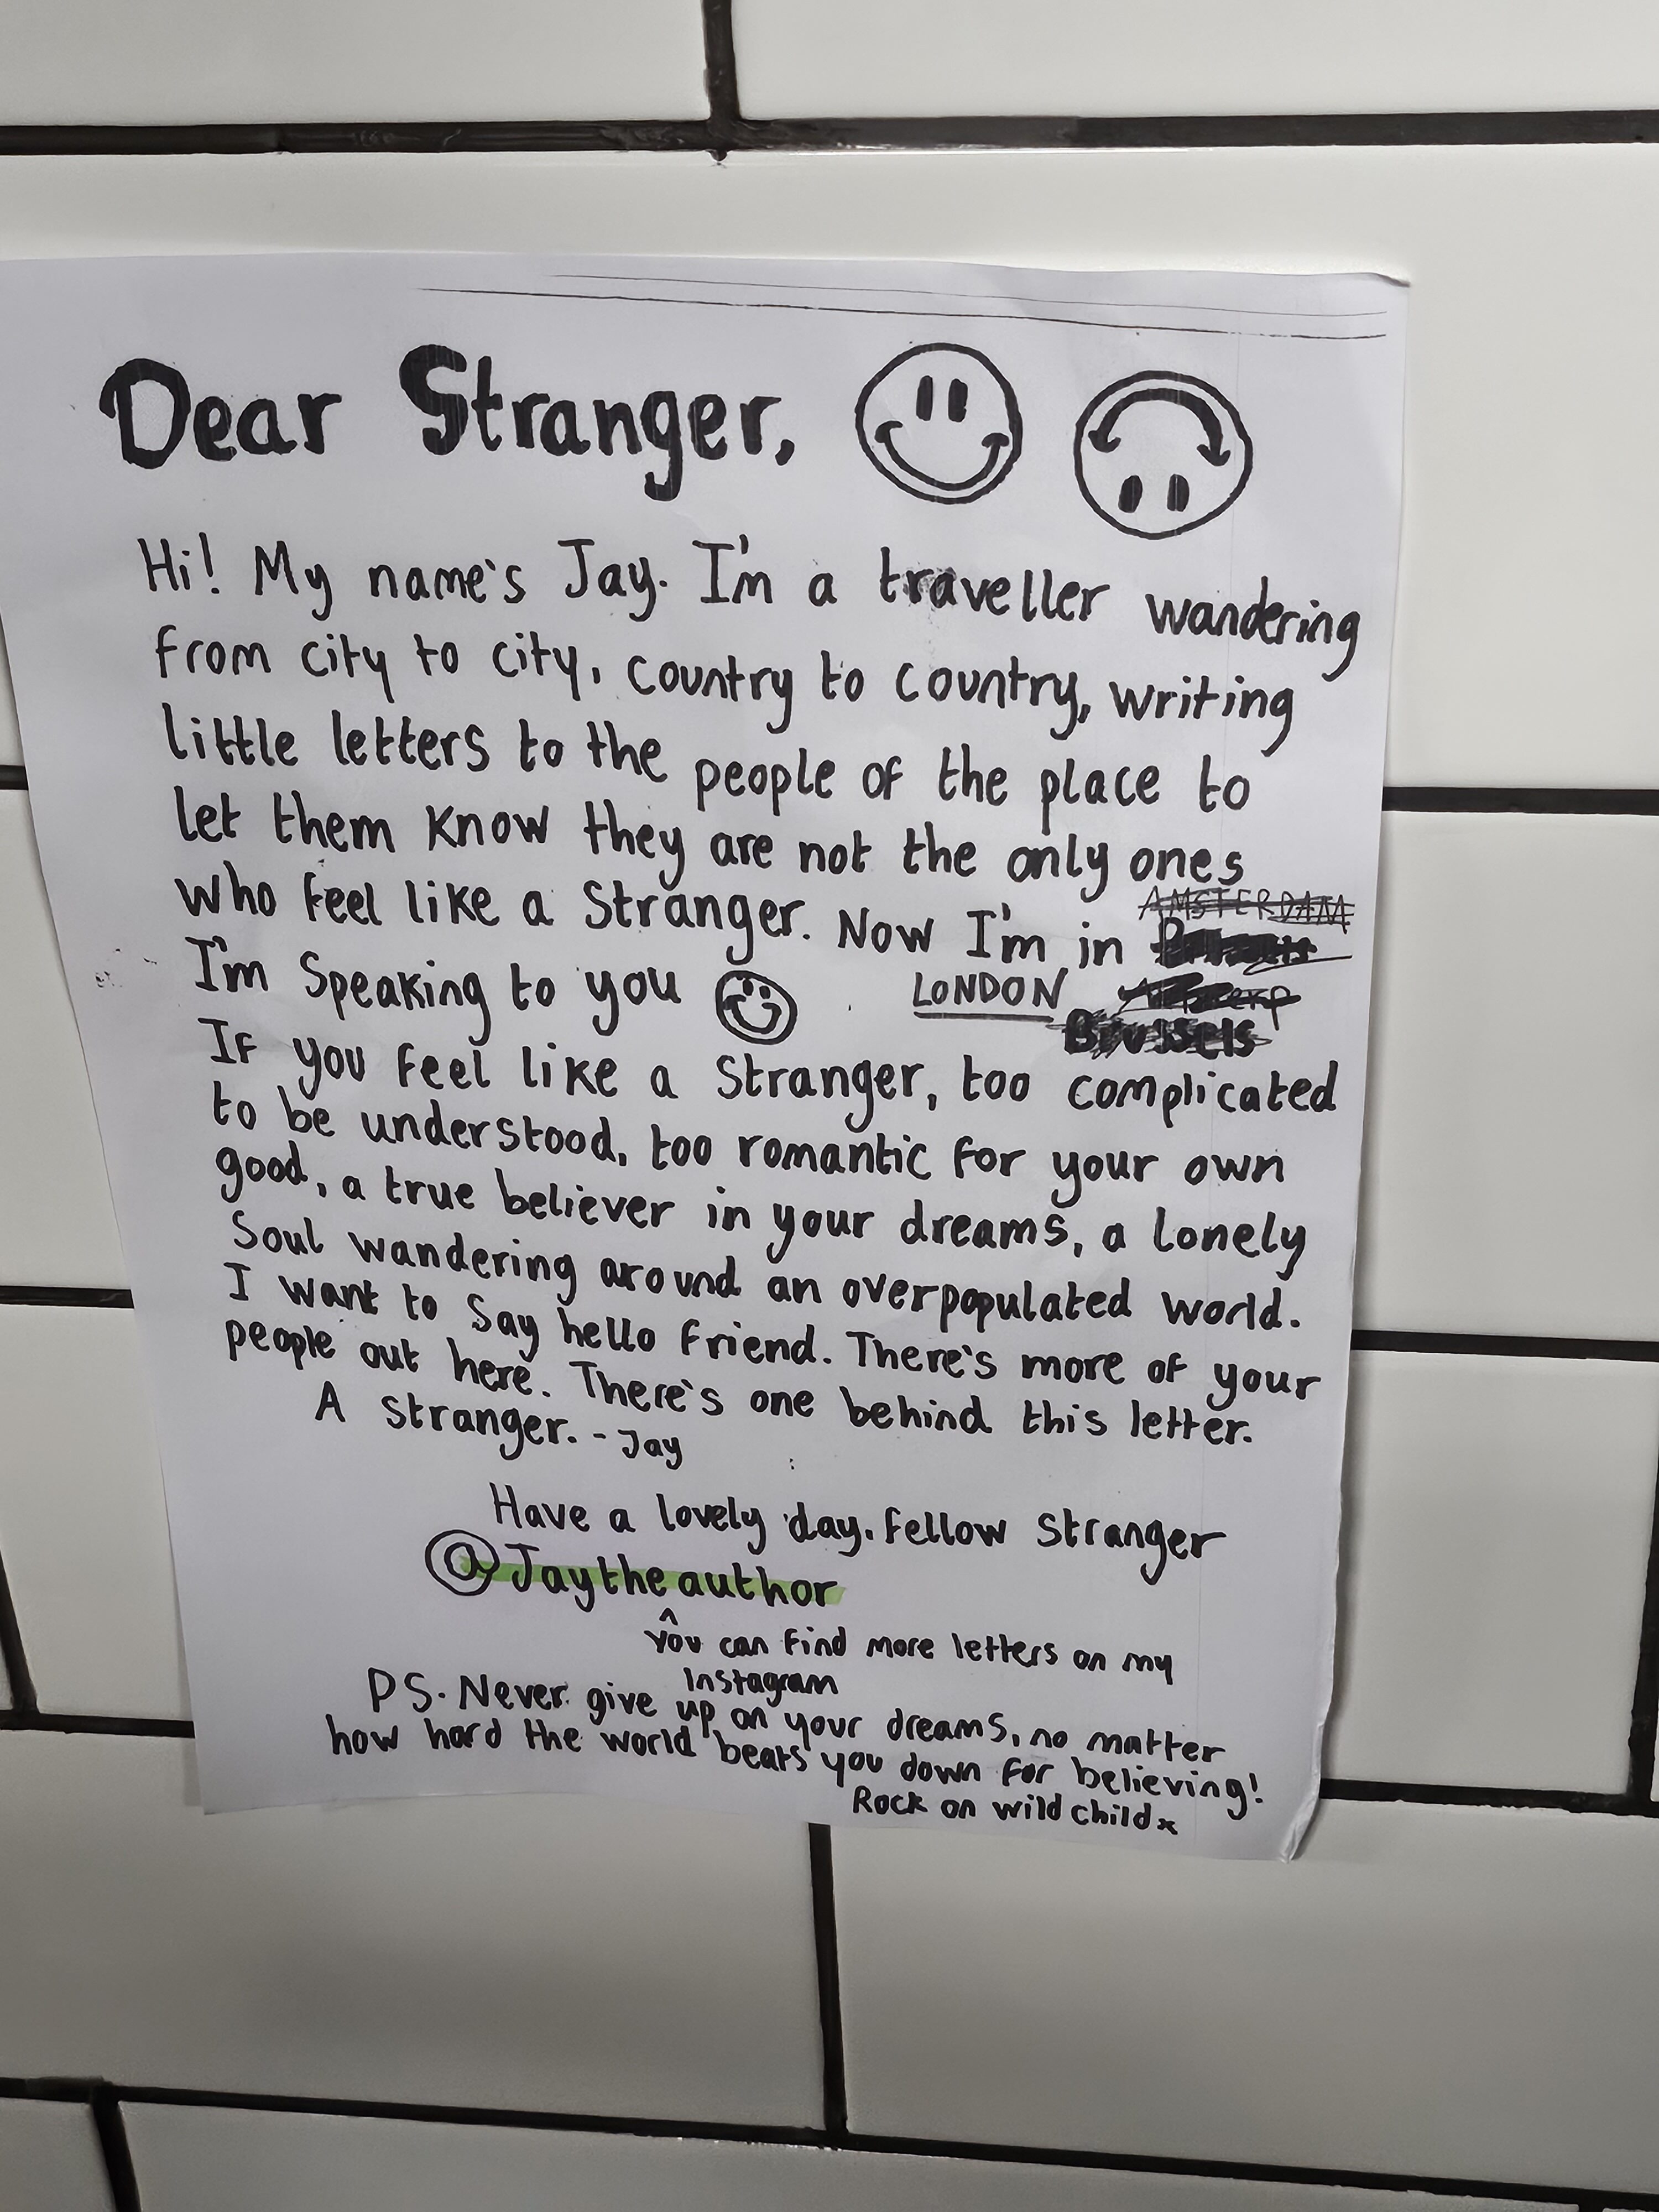 Dear Stranger,
Hi! My name's Jay. I'm a traveller wandering
from city to city, country to country, writing
little letters to the people of the place to
let them know they are not the only ones
who feel like a Stranger. Now I'm in AMSTERDAM
I'm speaking to you LONDON
Brussels
If you feel like a stranger, too complicated
to be understood, too romantic for your own
good, a true believer in your dreams, a lonely
Soul wandering around an overpopulated world.
I want to say hello friend. There's more of your
people out here. There's one behind this letter.
A stranger. - Jay
Have a lovely day. fellow stranger
@Jaytheauthor
^
you can find more letters on my
Instagram
PS. Never give up on your dreams, no matter
how hard the world beats you down for believing!
Rock on wild child x